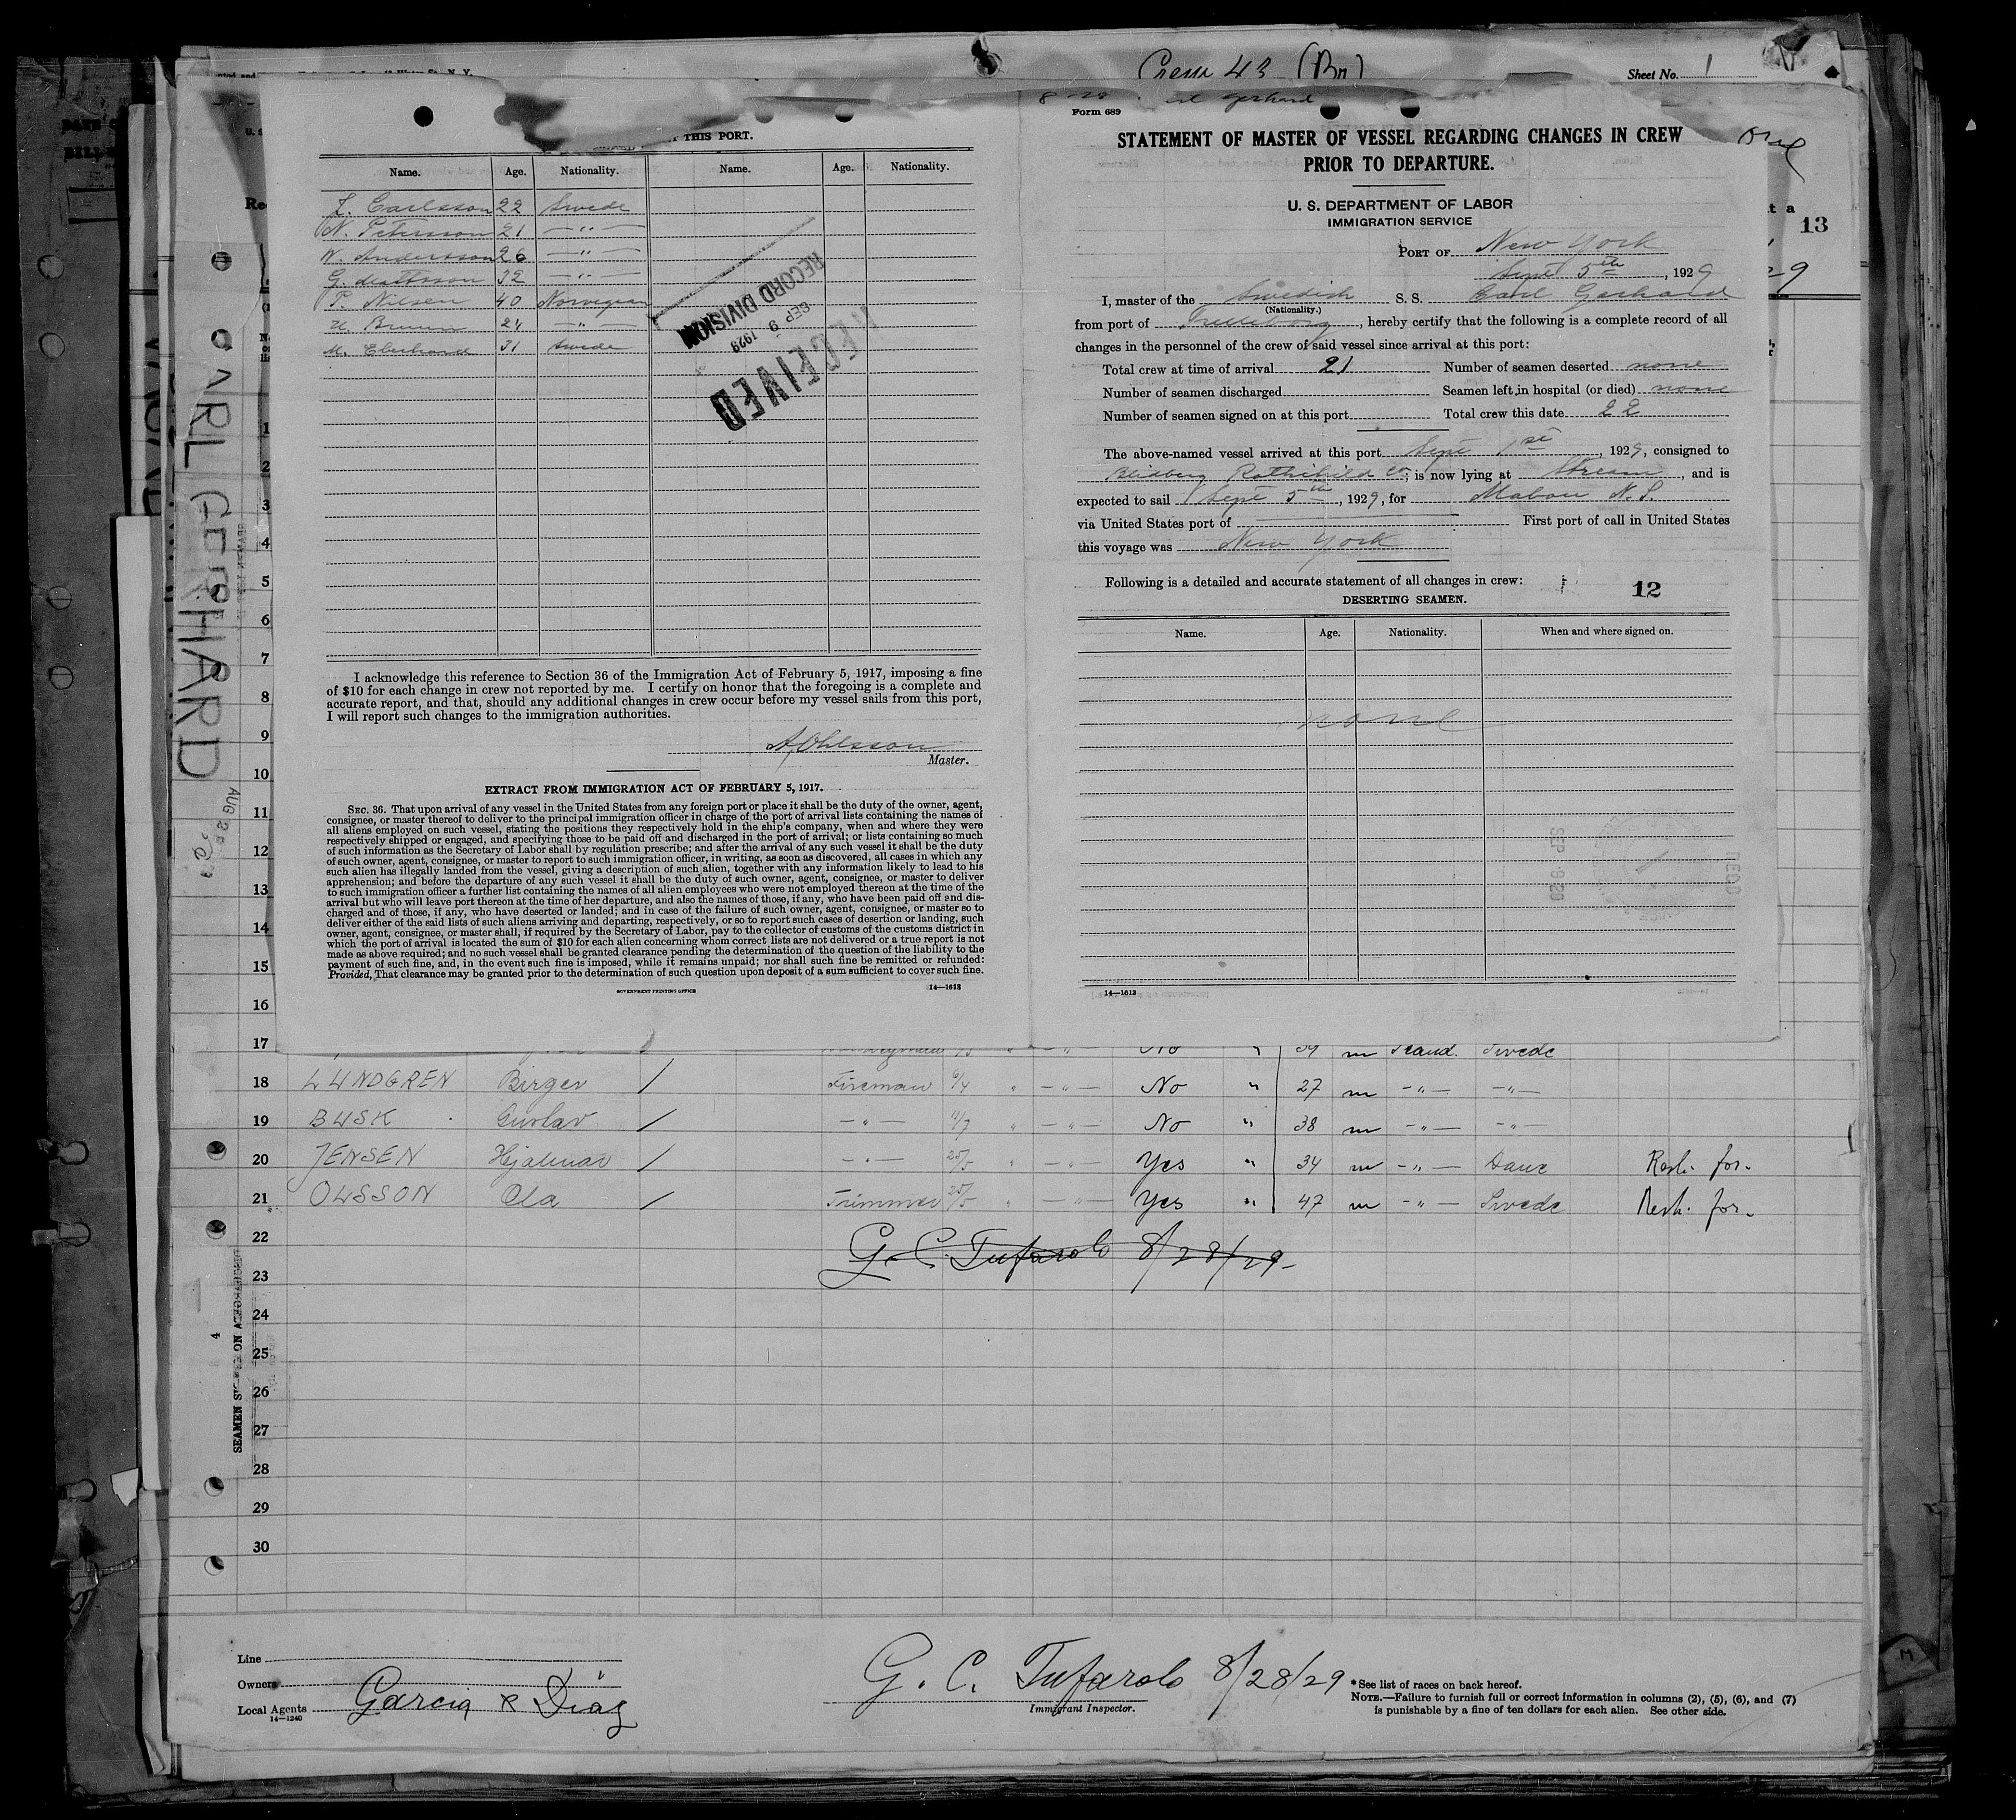 Crew 43 (Bn)
Sheet No. 1
THIS PORT.
Name. Age. Nationality. Name. Age. Nationality.
Z. Carlsson 22 Swede
N. Petersson 21 —"—
W. Andersson 26 —"—
G. Mattsson 32 —"—
P. Nilsen 40 Norwegian
U. Bruun 24 —"—
M. Eberhard 31 Swede
RECEIVED
SEP 9 1929
RECORD DIVISION
I acknowledge this reference to Section 36 of the Immigration Act of February 5, 1917, imposing a fine
of $10 for each change in crew not reported by me. I certify on honor that the foregoing is a complete and
accurate report, and that, should any additional changes in crew occur before my vessel sails from this port,
I will report such changes to the immigration authorities.
A Ohlsson
Master.
EXTRACT FROM IMMIGRATION ACT OF FEBRUARY 5, 1917.
SEC. 36. That upon arrival of any vessel in the United States from any foreign port or place it shall be the duty of the owner, agent,
consignee, or master thereof to deliver to the principal immigration officer in charge of the port of arrival lists containing the names of
all aliens employed on such vessel, stating the positions they respectively hold in the ship's company, when and where they were
respectively shipped or engaged, and specifying those to be paid off and discharged in the port of arrival; or lists containing so much
of such information as the Secretary of Labor shall by regulation prescribe; and after the arrival of any such vessel it shall be the duty
of such owner, agent, consignee, or master to report to such immigration officer, in writing, as soon as discovered, all cases in which any
such alien has illegally landed from the vessel, giving a description of such alien, together with any information likely to lead to his
apprehension; and before the departure of any such vessel it shall be the duty of such owner, agent, consignee, or master to deliver
to such immigration officer a further list containing the names of all alien employees who were not employed thereon at the time of the
arrival but who will leave port thereon at the time of her departure, and also the names of those, if any, who have been paid off and dis-
charged and of those, if any, who have deserted or landed; and in case of the failure of such owner, agent, consignee, or master so to
deliver either of the said lists of such aliens arriving and departing, respectively, or so to report such cases of desertion or landing, such
owner, agent, consignee, or master shall, if required by the Secretary of Labor, pay to the collector of customs of the customs district in
which the port of arrival is located the sum of $10 for each alien concerning whom correct lists are not delivered or a true report is not
made as above required; and no such vessel shall be granted clearance pending the determination of the question of the liability to the
payment of such fine, and, in the event such fine is imposed, while it remains unpaid; nor shall such fine be remitted or refunded:
Provided, That clearance may be granted prior to the determination of such question upon deposit of a sum sufficient to cover such fine.
GOVERNMENT PRINTING OFFICE 14—1613
Form 689
STATEMENT OF MASTER OF VESSEL REGARDING CHANGES IN CREW
PRIOR TO DEPARTURE.
U. S. DEPARTMENT OF LABOR
IMMIGRATION SERVICE
PORT OF New York
Sept 5th, 1929
I, master of the Swedish S. S. Carl Gerhard
(Nationality.)
from port of Trelleborg, hereby certify that the following is a complete record of all
changes in the personnel of the crew of said vessel since arrival at this port:
Total crew at time of arrival 21 Number of seamen deserted none
Number of seamen discharged Seamen left in hospital (or died) none
Number of seamen signed on at this port Total crew this date 22
The above-named vessel arrived at this port Sept 1st, 1929, consigned to
Rothchild Co; is now lying at Stream, and is
expected to sail Sept 5th, 1929, for Mabou N. S.
via United States port of First port of call in United States
this voyage was New York
Following is a detailed and accurate statement of all changes in crew:
12
DESERTING SEAMEN.
Name. Age. Nationality. When and where signed on.
none
14—1613
13
CARL GERHARD
1
2
3
4
5
6
7
8
9
10
11
12
13
14
15
16
17 No " 39 m Scand. Swede
18 LUNDGREN Birger / Fireman 6/4 " —"— No " 27 m —"— —"—
19 BUSK Gustav / —"— 11/7 " —"— No " 38 m —"— —"—
20 JENSEN Hjalmar / —"— 25/5 " —"— Yes " 34 m —"— Dane Resh. for.
21 OLSSON Ola / Trimmer 25/5 " —"— Yes " 47 m —"— Swede Resh. for.
22 G. C. Tufarolo 8/28/29
23
24
25
26
27
28
29
30
Line
Owners
Local Agents Garcia & Diaz
14—1240
G. C. Tufarolo 8/28/29
Immigrant Inspector.
*See list of races on back hereof.
NOTE.—Failure to furnish full or correct information in columns (2), (5), (6), and (7)
is punishable by a fine of ten dollars for each alien. See other side.